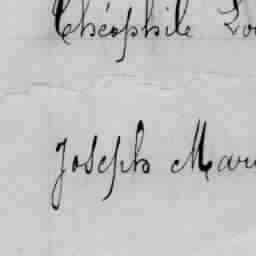 Théophile Lou
Joseph Mari